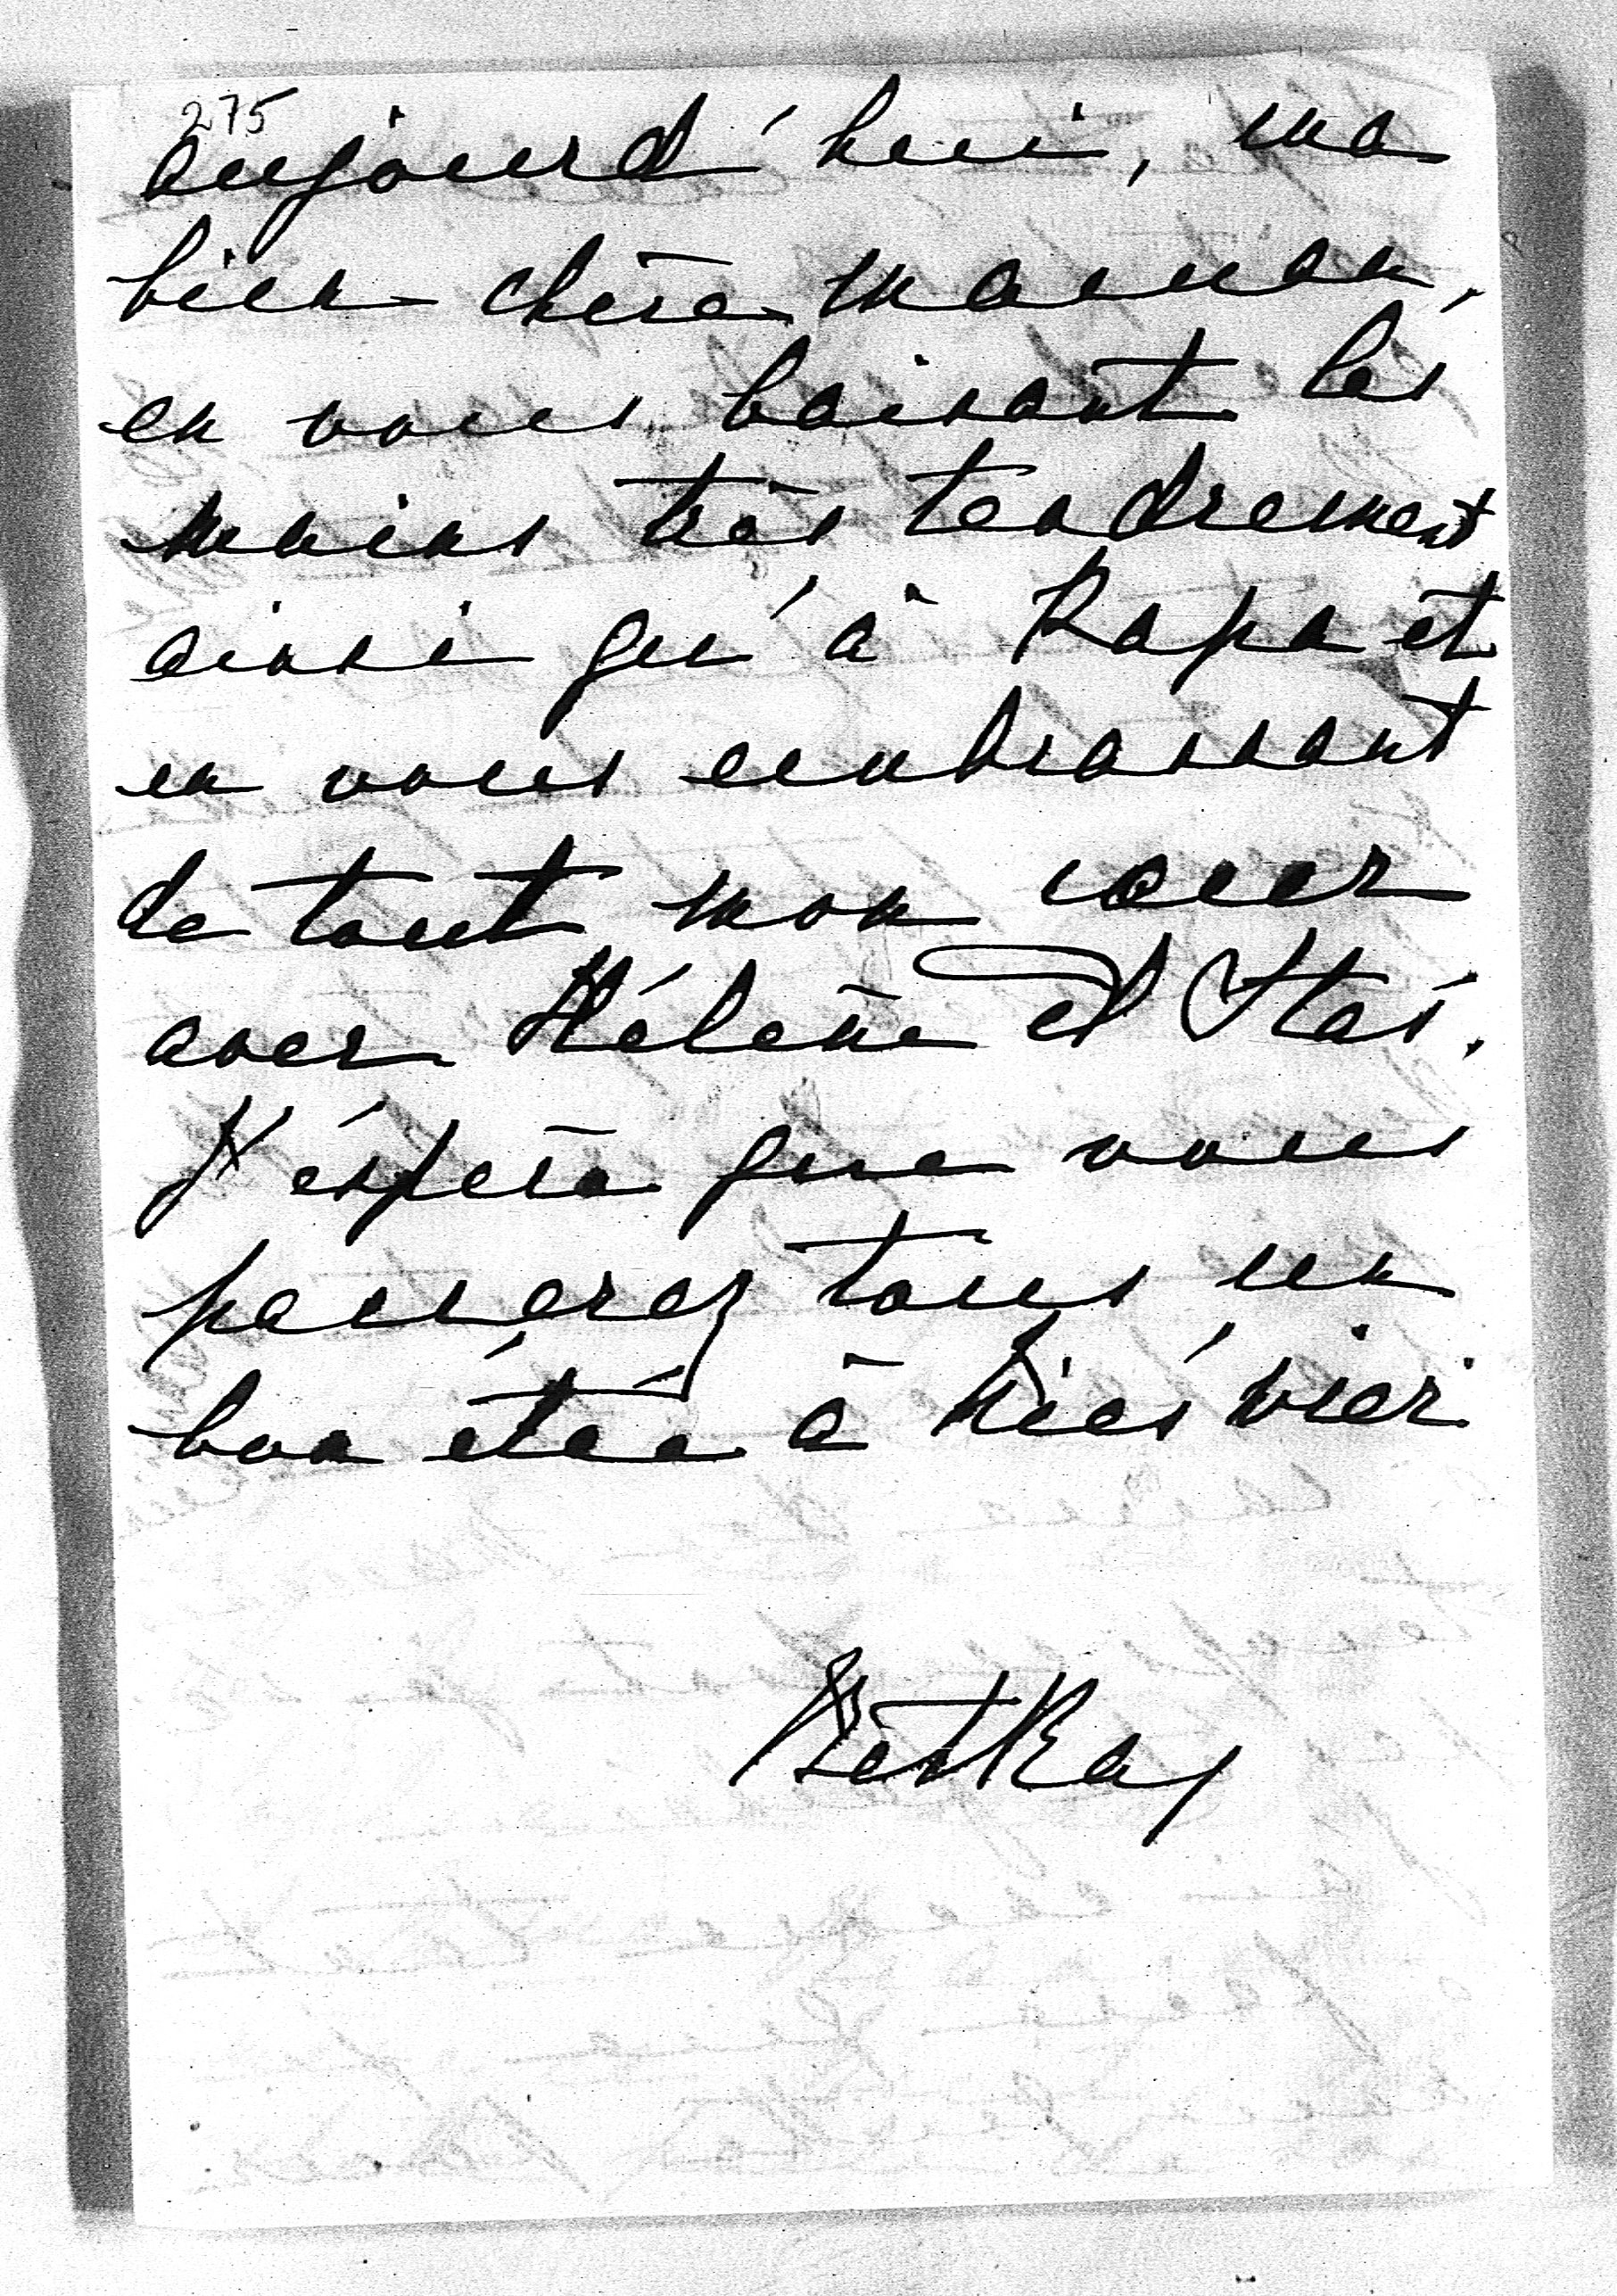 275
aujourd'hui, ma
bien chère maman,
en vous baisant les
mains très tendrement
ainsi qu'à Papa et
en vous embrassant
de tout mon coeur
avec Hélène et Stas.
J'espère que vous
passerez tous un
bon été à Nieśwież
Betka